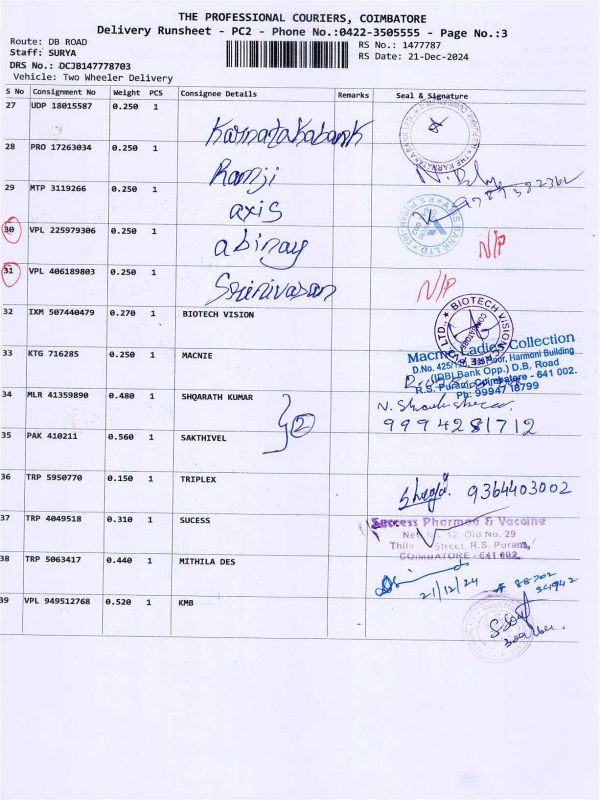 THE PROFESSIONAL COURIERS, COIMBATORE
Delivery Runsheet - PC2 - Phone No.:0422-3505555 - Page No.:3
Route: DB ROAD
Staff: SURYA
DRS No.: DCJB147778703
Vehicle: Two Wheeler Delivery
RS No.: 1477787
RS Date: 21-Dec-2024
S No Consignment No Weight PCS Consignee Details Remarks Seal & Signature
27 UDP 18015587 0.250 1 Karnatakabank
28 PRO 17263034 0.250 1 Ramji
29 MTP 3119266 0.250 1 axis
30 VPL 225979306 0.250 1 abinay N/P
31 VPL 406189803 0.250 1 Srinivasan N/P
32 IXM 507440479 0.270 1 BIOTECH VISION
BIOTECH VISION
COIMBATORE
33 KTG 716285 0.250 1 MACNIE
Macnie Ladies Collection
Floor, Harmoni Building
(IDBI Bank Opp.) D.B. Road
R.S. Puram, Coimbatore - 641 002.
Ph: 9994718799
34 MLR 41359890 0.480 1 SHQARATH KUMAR
2
9994281712
35 PAK 410211 0.560 1 SAKTHIVEL
36 TRP 5950770 0.150 1 TRIPLEX 9364403002
37 TRP 4049518 0.310 1 SUCESS
Success Pharmed & Vaccine
New No. 12, Old No. 29
Street, R.S. Puram,
COIMBATORE - 641 002.
38 TRP 5063417 0.440 1 MITHILA DES
21/12/24
39 VPL 949512768 0.520 1 KMB